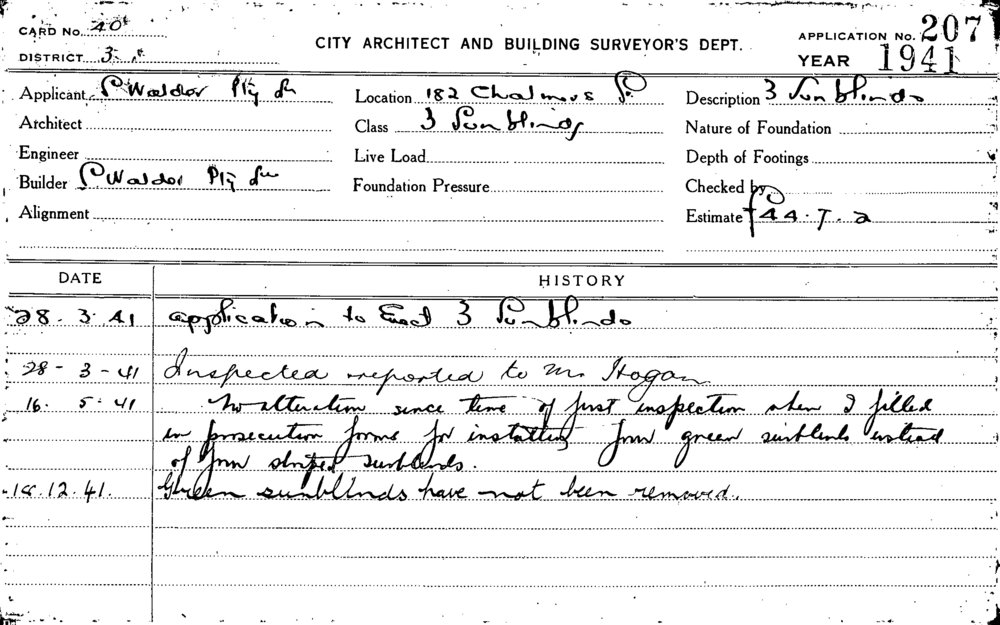 CARD No. 40
CITY ARCHITECT AND BUILDING SURVEYOR'S DEPT.
APPLICATION No. 207
DISTRICT 3
YEAR 1941
Applicant S Walder Pty Ltd
Location 182 Chalmers St.
Description 3 Sunblinds
Architect
Class 3 Sunblinds
Nature of Foundation
Engineer
Live Load
Depth of Footings
Builder S Walder Pty Ltd
Foundation Pressure
Checked by
Alignment
Estimate £44.7.2
DATE HISTORY
28.3.41 application to Erect 3 Sunblinds
28-3-41 Inspected reported to Mr Hogan
16.5.41 No alteration since time of first inspection when I filled
in prosecution forms for installing four green sunblinds instead
of four striped sunblinds.
18.12.41. Green sunblinds have not been removed.